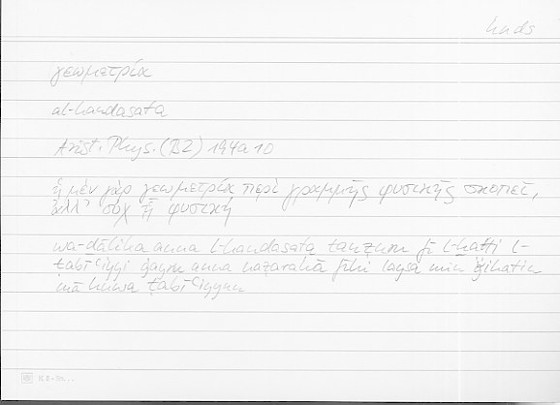 hnds
γεωμετρία
al-handasata
Arist. Phys. (B2) 194a10
ἡ μὲν γὰρ γεωμετρία περὶ γραμμῆς φυσικῆς σκοπεῖ,
ἀλλ' οὐχ ᾗ φυσική
wa-ḏālika anna l-handasata tanẓuru fī l-ḫaṭṭi l-
ṭabīʿiyyi ġayra anna naẓarahā fīhi laysa min ǧihatin
mā huwa ṭabīʿiyyun